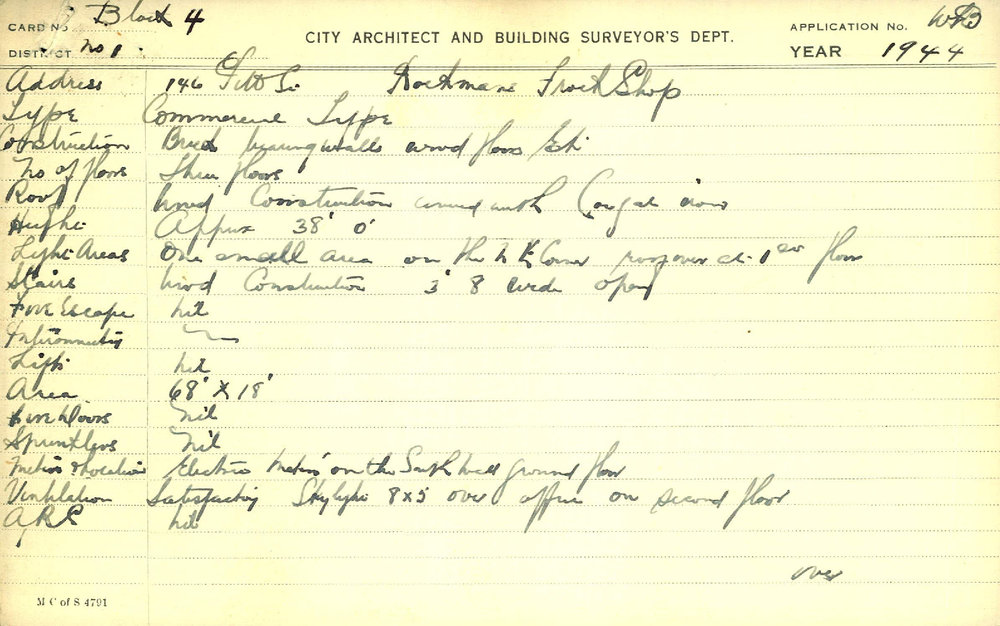 CARD No Block 4
DISTRICT No 1.
CITY ARCHITECT AND BUILDING SURVEYOR'S DEPT.
APPLICATION No. WB
YEAR 1944
Address 146 Pitt St Frock Shop
Type Commercial Type
Construction Brick bearing walls wood floors Etc
No of floors Three floors
Roof Wood Construction covered with Corgat iron
Height Approx 38' 0"
Light Areas One small area on the Corner roof over at 1st floor
Stairs Wood Construction 3' 8 wide open
Fire Escape Nil
Lifts Nil
Area 68' x 18'
Fire Doors Nil
Sprinklers Nil
Meters & Location Electric Meters on the South wall ground floor
Ventilation Satisfactory Skylight 8 x 5' over office on second floor
A.R.P. Nil
over
M C of S 4791